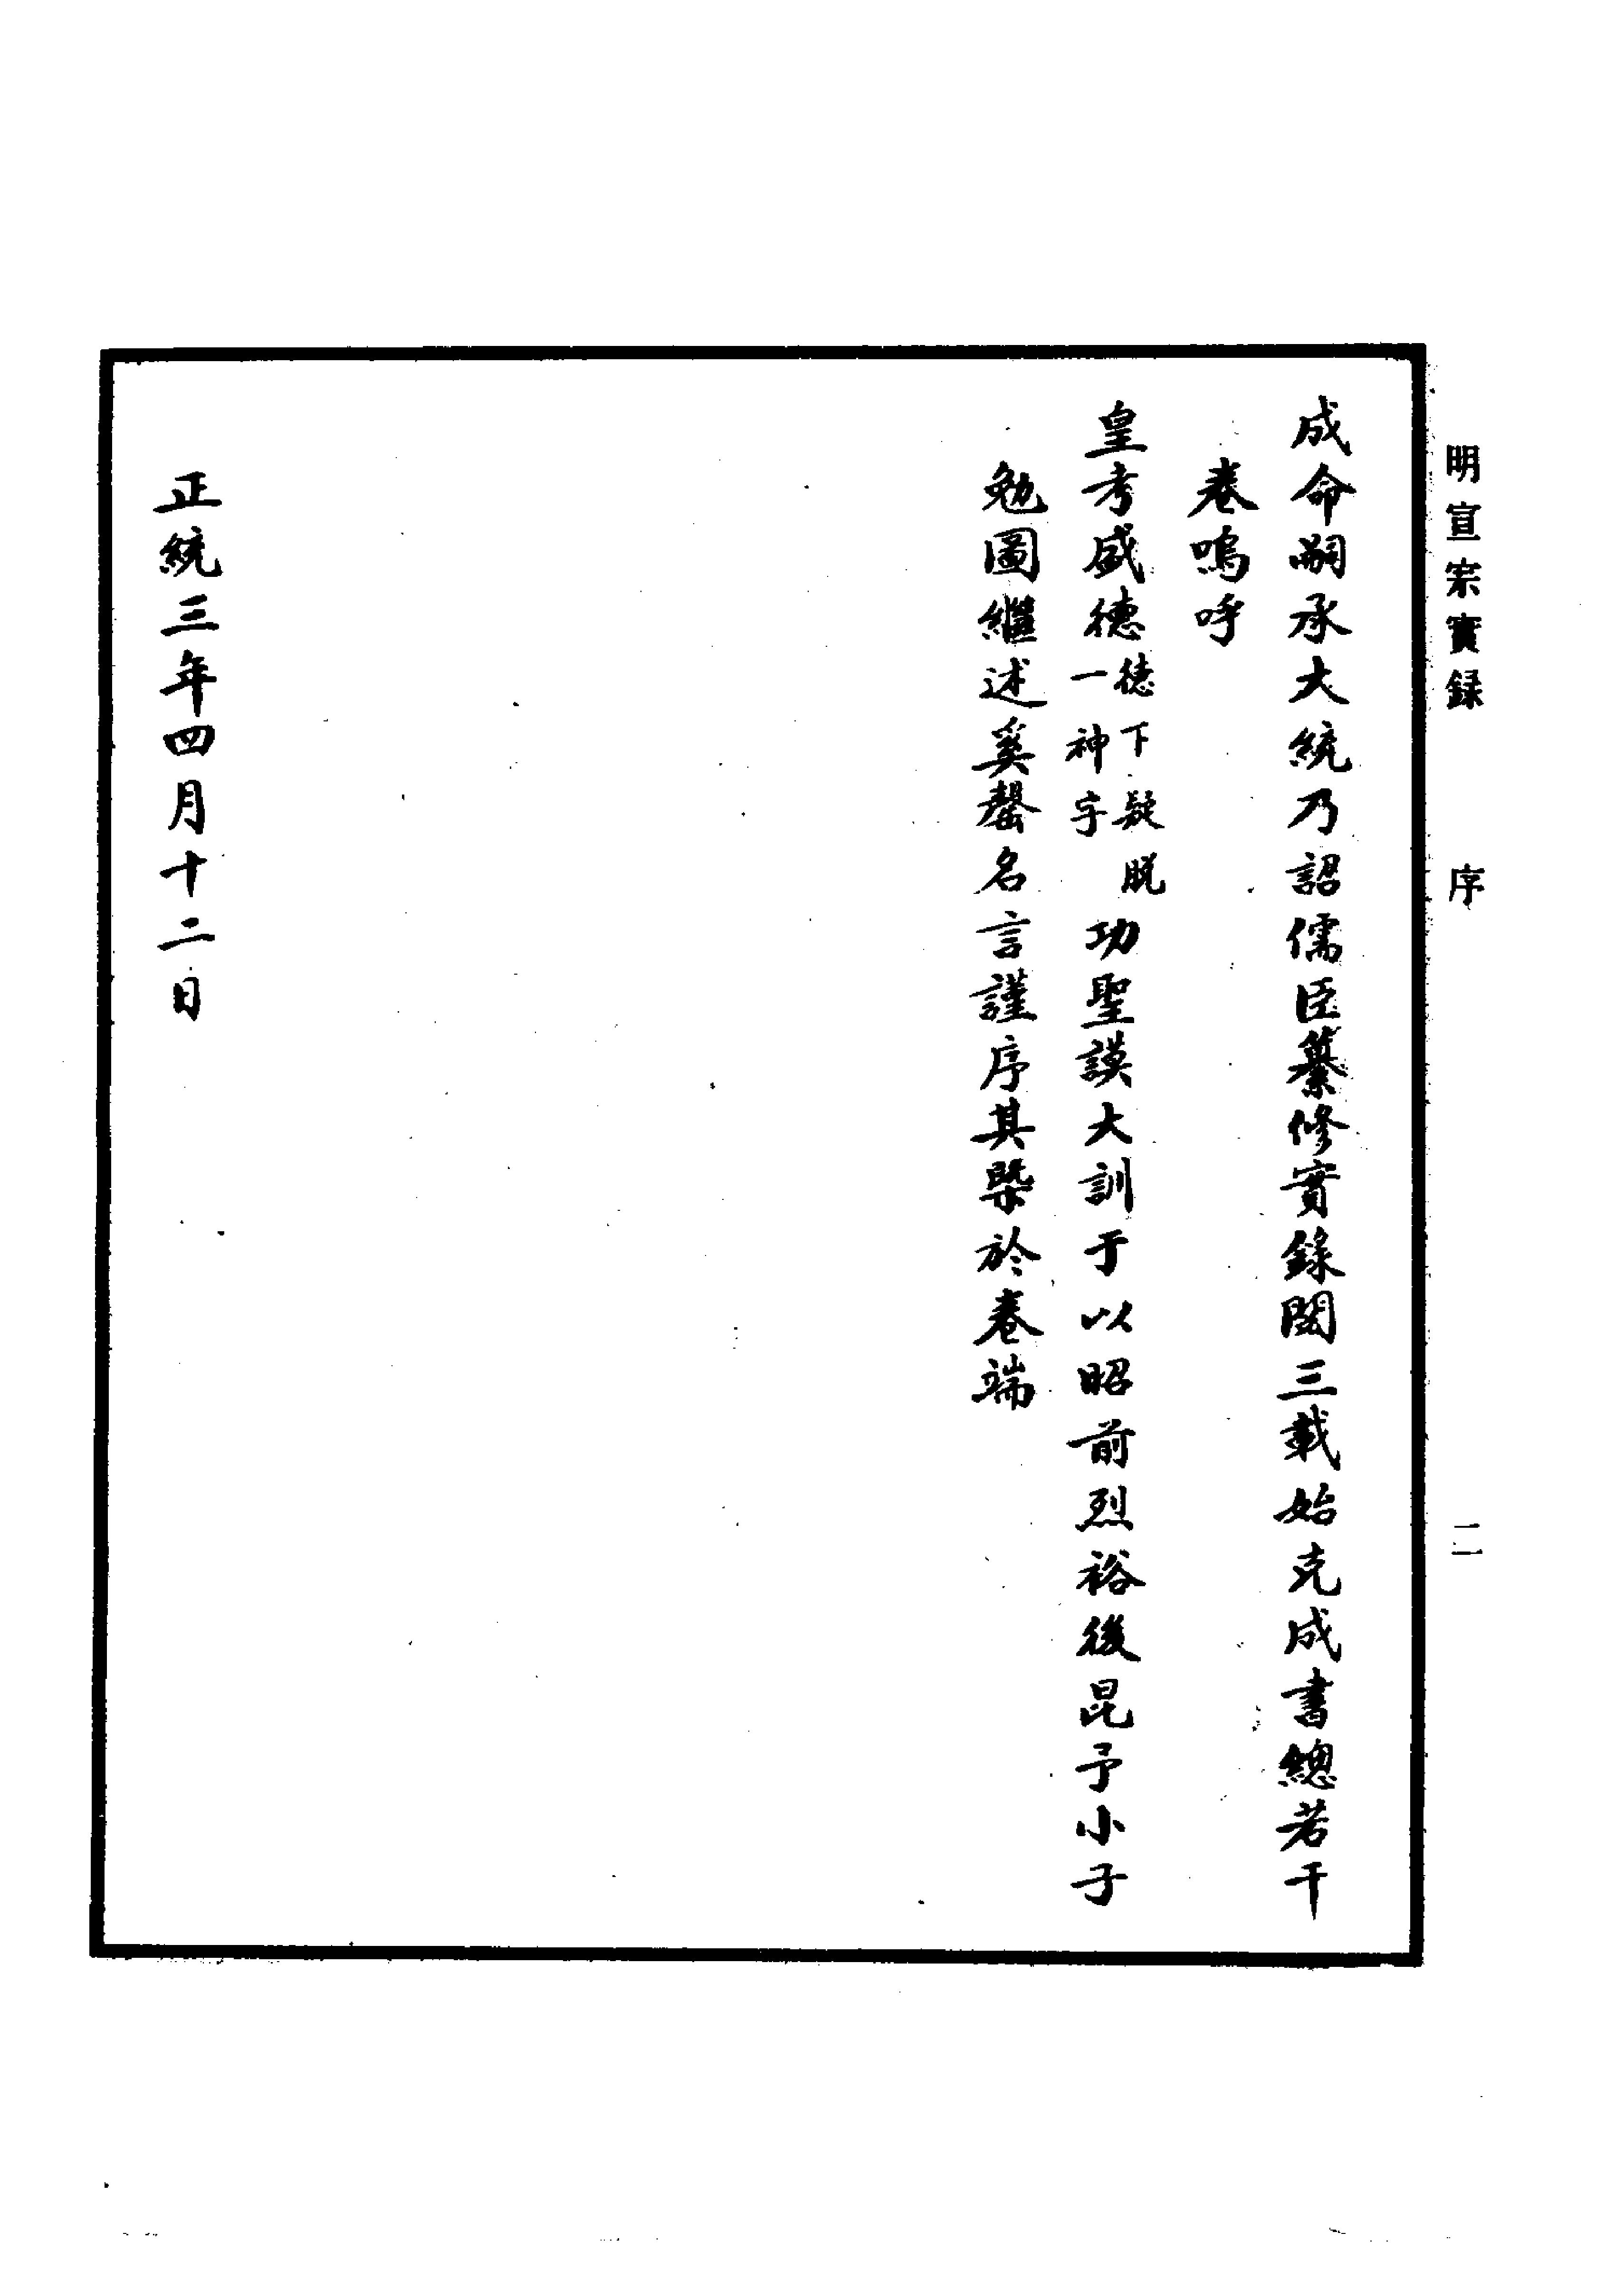 明宣宗實録　序　二
成命嗣承大統乃詔儒臣纂修實錄閱三載始克成書總若干
卷嗚呼
皇考盛德德下疑脫一神字功聖謨大訓于以昭前烈裕後昆予小子
勉圖繼述奚罄名言謹序其槩於卷端
正統三年四月十二日